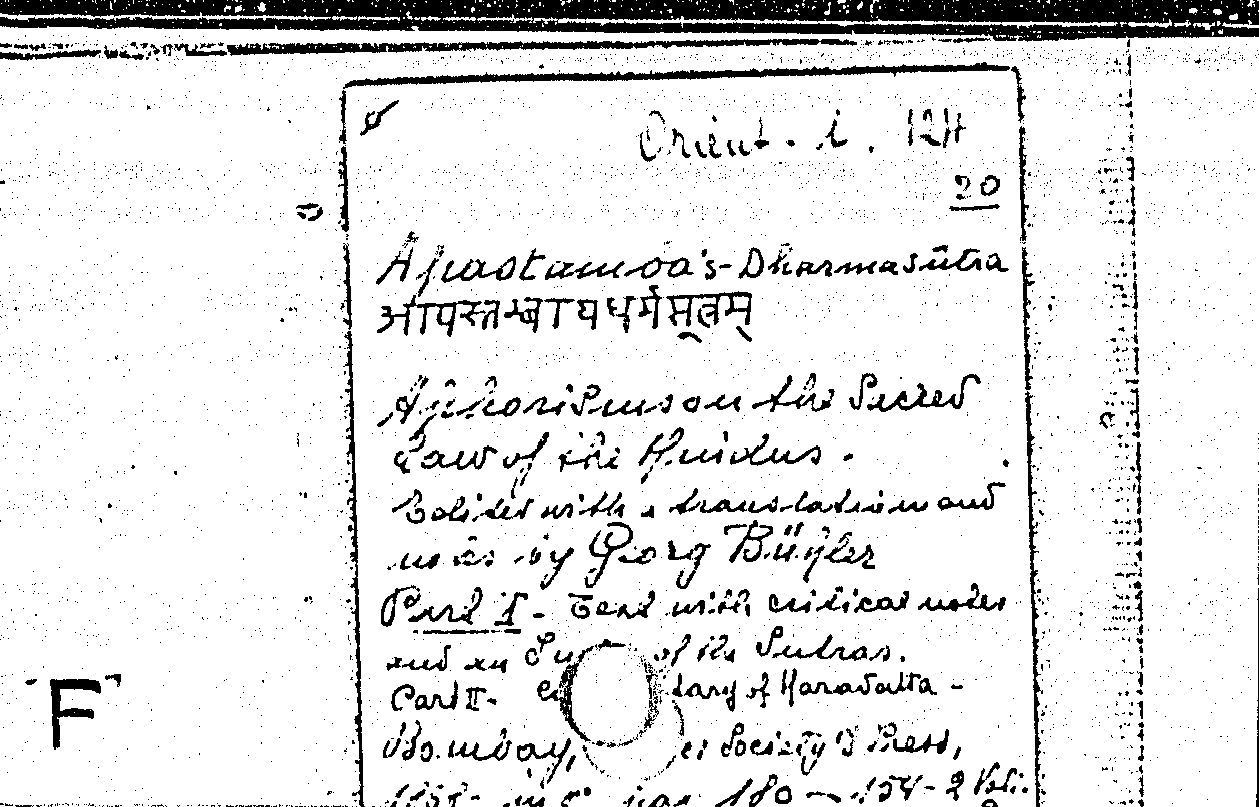 Orient. i. 124
20
Apastamba's-Dharmasūtra
आपस्तम्बीयधर्मसूत्रम्
Aphorisms on the Sacred
Law of the Hindus.
Edited with a translation and
notes by Georg Bühler
Part I - Text with critical notes
and an of the Sutras.
Part II- tary of Haradatta -
Bombay, Society's Press,
in 8° pag. 180 — 154 - 2 Vol.
"F"